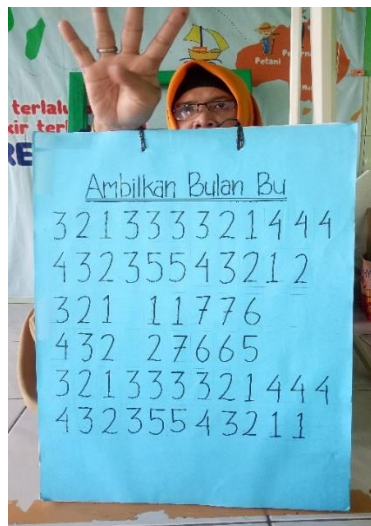 Petani
terlalu
kir ter
RE
Ambilkan Bulan Bu
3 2 1 3 3 3 3 2 1 4 4 4
4 3 2 3 5 5 4 3 2 1 2
3 2 1 1 1 7 7 6
4 3 2 2 7 6 6 5
3 2 1 3 3 3 3 2 1 4 4 4
4 3 2 3 5 5 4 3 2 1 1